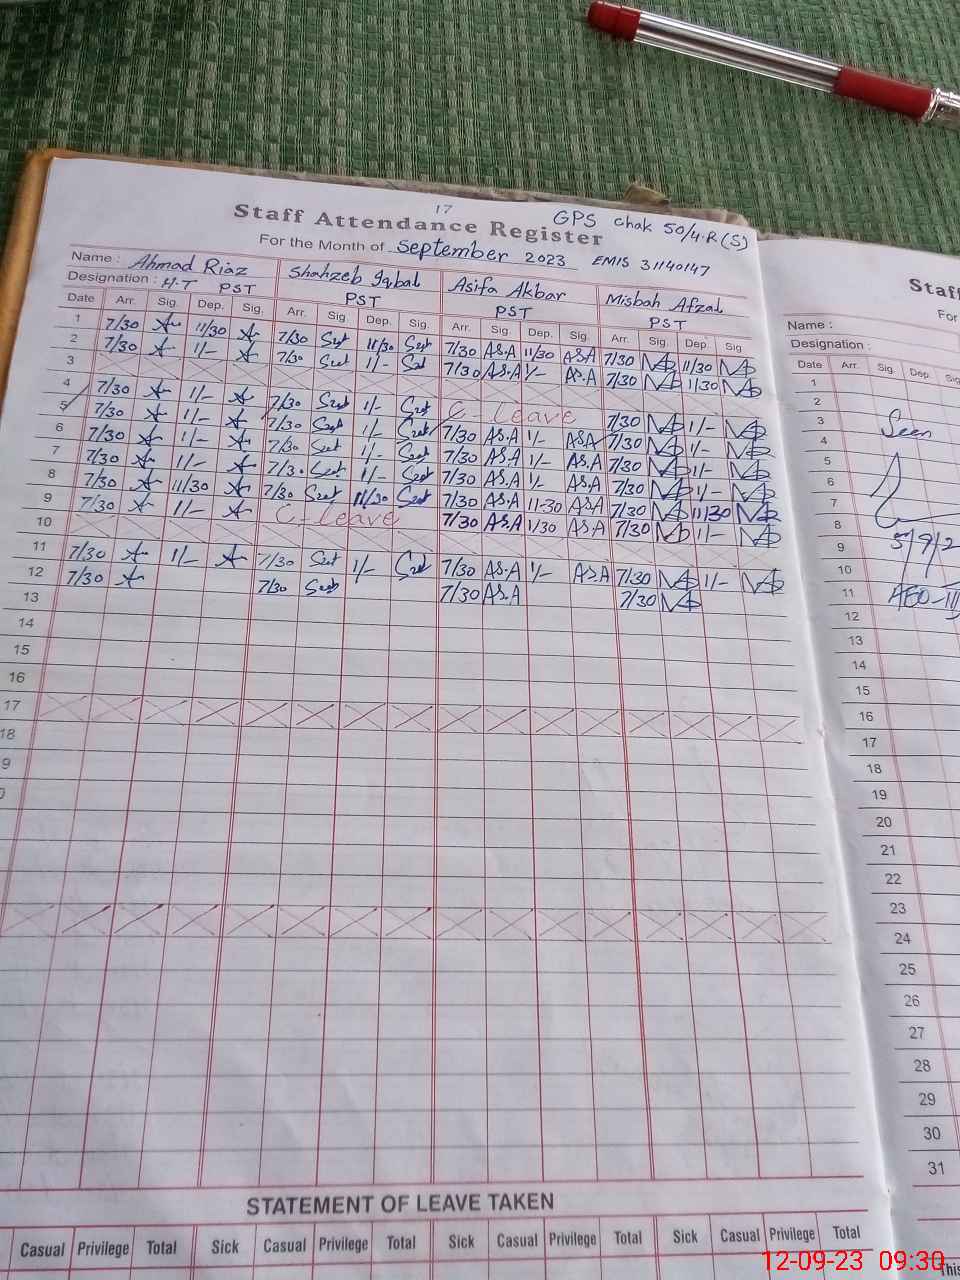 17
Staff Attendance Register
GPS chak 50/4.R (S)
For the Month of September 2023 EMIS 31140147
Name : Ahmad Riaz Shahzeb Iqbal Asifa Akbar Misbah Afzal
Designation : H.T PST PST PST PST
Date Arr. Sig. Dep. Sig. Arr. Sig. Dep. Sig. Arr. Sig. Dep. Sig. Arr. Sig. Dep. Sig
1 7/30 11/30 7/30 11/30 7/30 A.S.A 11/30 A.S.A 7/30 11/30
2 7/30 1/- 7/30 1/- 7/30 A.S.A 1/- A.S.A 7/30 11/30
3
4 7/30 1/- 7/30 1/- C-Leave 7/30 1/-
5 7/30 1/- 7/30 1/- 7/30 A.S.A 1/- A.S.A 7/30 1/-
6 7/30 1/- 7/30 1/- 7/30 A.S.A 1/- A.S.A 7/30 1/-
7 7/30 1/- 7/30 1/- 7/30 A.S.A 1/- A.S.A 7/30 1/-
8 7/30 11/30 7/30 11/30 7/30 A.S.A 11-30 A.S.A 7/30 11/30
9 7/30 1/- C-Leave 7/30 A.S.A 1/30 A.S.A 7/30 1/-
10
11 7/30 1/- 7/30 1/- 7/30 A.S.A 1/- A.S.A 7/30 1/-
12 7/30 7/30 7/30 A.S.A 7/30
13
14
15
16
17
18
9
STATEMENT OF LEAVE TAKEN
Casual Privilege Total Sick Casual Privilege Total Sick Casual Privilege Total Sick Casual Privilege Total
Staff
For
Name :
Designation :
Date Arr. Sig. Dep. Sig.
1
2
3 Seen
4
5
6
7
8
9 5/9/2
10
11 AEO-
12
13
14
15
16
17
18
19
20
21
22
23
24
25
26
27
28
29
30
31
This
12-09-23 09:30